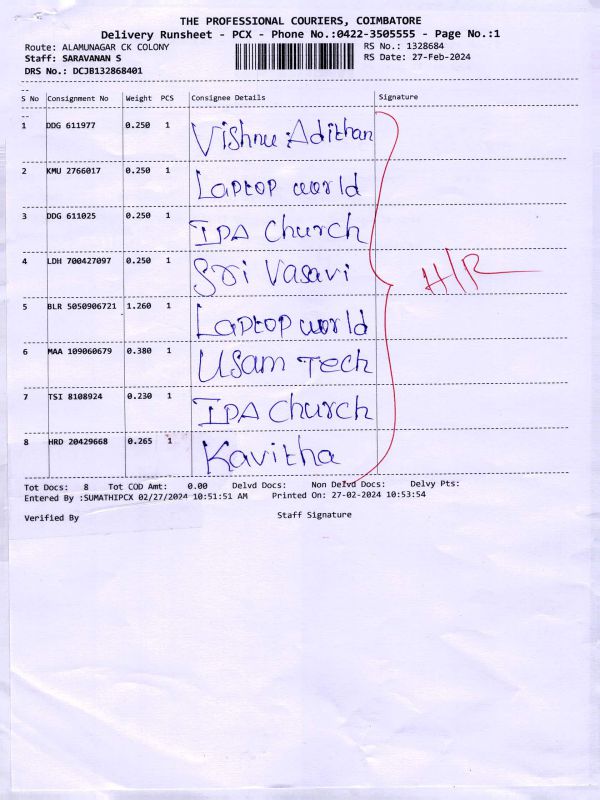 THE PROFESSIONAL COURIERS, COIMBATORE
Delivery Runsheet - PCX - Phone No.:0422-3505555 - Page No.:1
Route: ALAMUNAGAR CK COLONY RS No.: 1328684
Staff: SARAVANAN S RS Date: 27-Feb-2024
DRS No.: DCJB132868401
S No Consignment No Weight PCS Consignee Details Signature
1 DDG 611977 0.250 1 Vishnu Adithan
2 KMU 2766017 0.250 1 Laptop world
3 DDG 611025 0.250 1 IPA Church
4 LDH 700427097 0.250 1 Sri Vasavi
H/R
5 BLR 5050906721 1.260 1 Laptop world
6 MAA 109060679 0.380 1 Usam Tech
7 TSI 8108924 0.230 1 IPA Church
8 HRD 20429668 0.265 1 Kavitha
Tot Docs: 8 Tot COD Amt: 0.00 Delvd Docs: Non Delvd Docs: Delvy Pts:
Entered By :SUMATHIPCX 02/27/2024 10:51:51 AM Printed On: 27-02-2024 10:53:54
Verified By Staff Signature